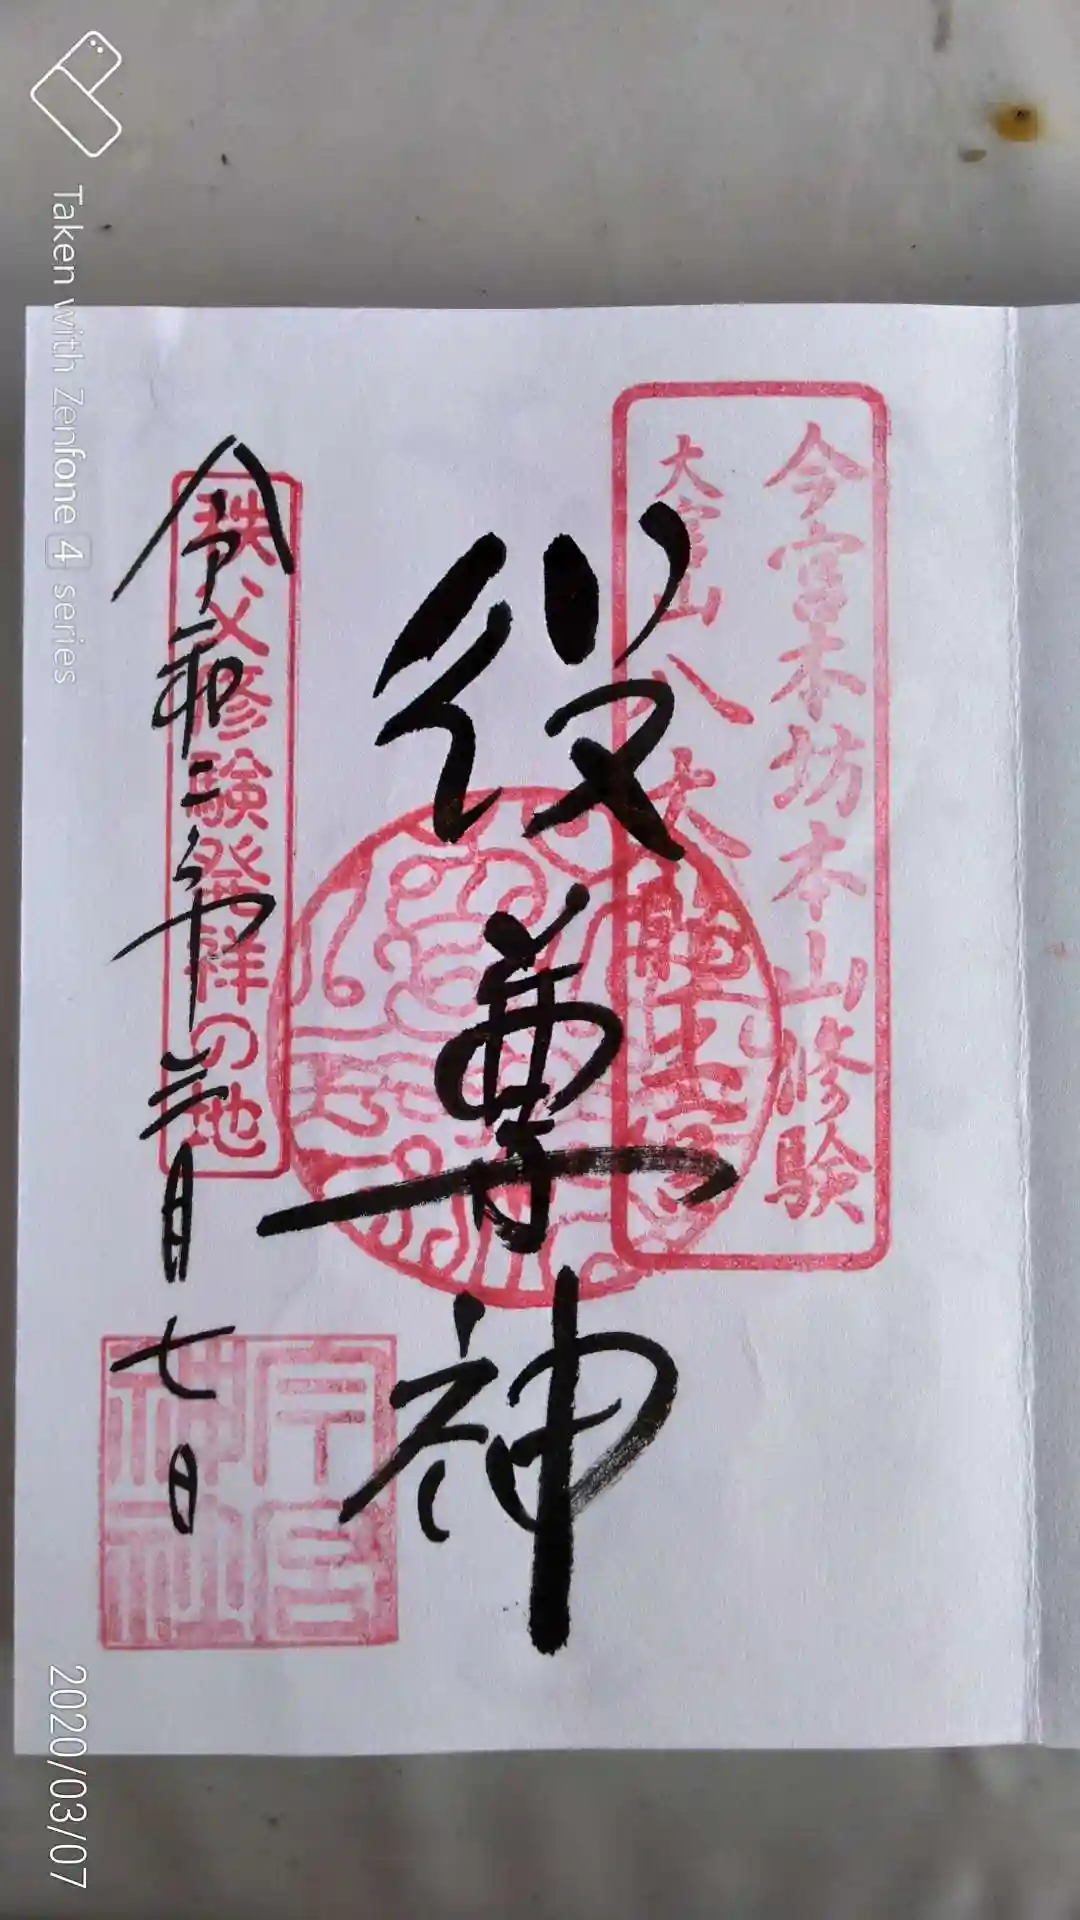 今宮本坊本山修験
大宮山八大龍王宮
役尊神
秩父修験発祥の地
令和二年三月七日
今宮
神社
Taken with Zenfone 4 series
2020/03/07